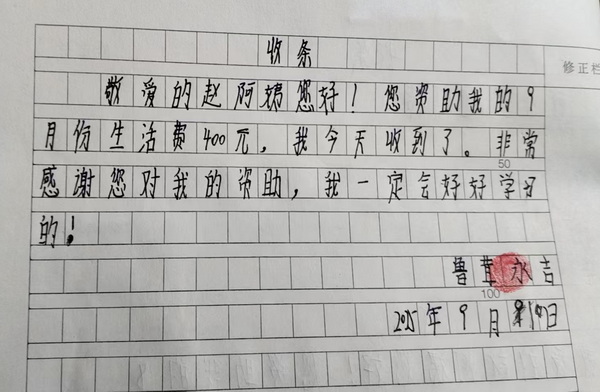 收条
修正栏
敬爱的赵阿姨您好！您资助我的9
月份生活费400元，我今天收到了。非常
50
感谢您对我的资助，我一定会好好学习
的！
鲁茸永吉
100
2025年9月日